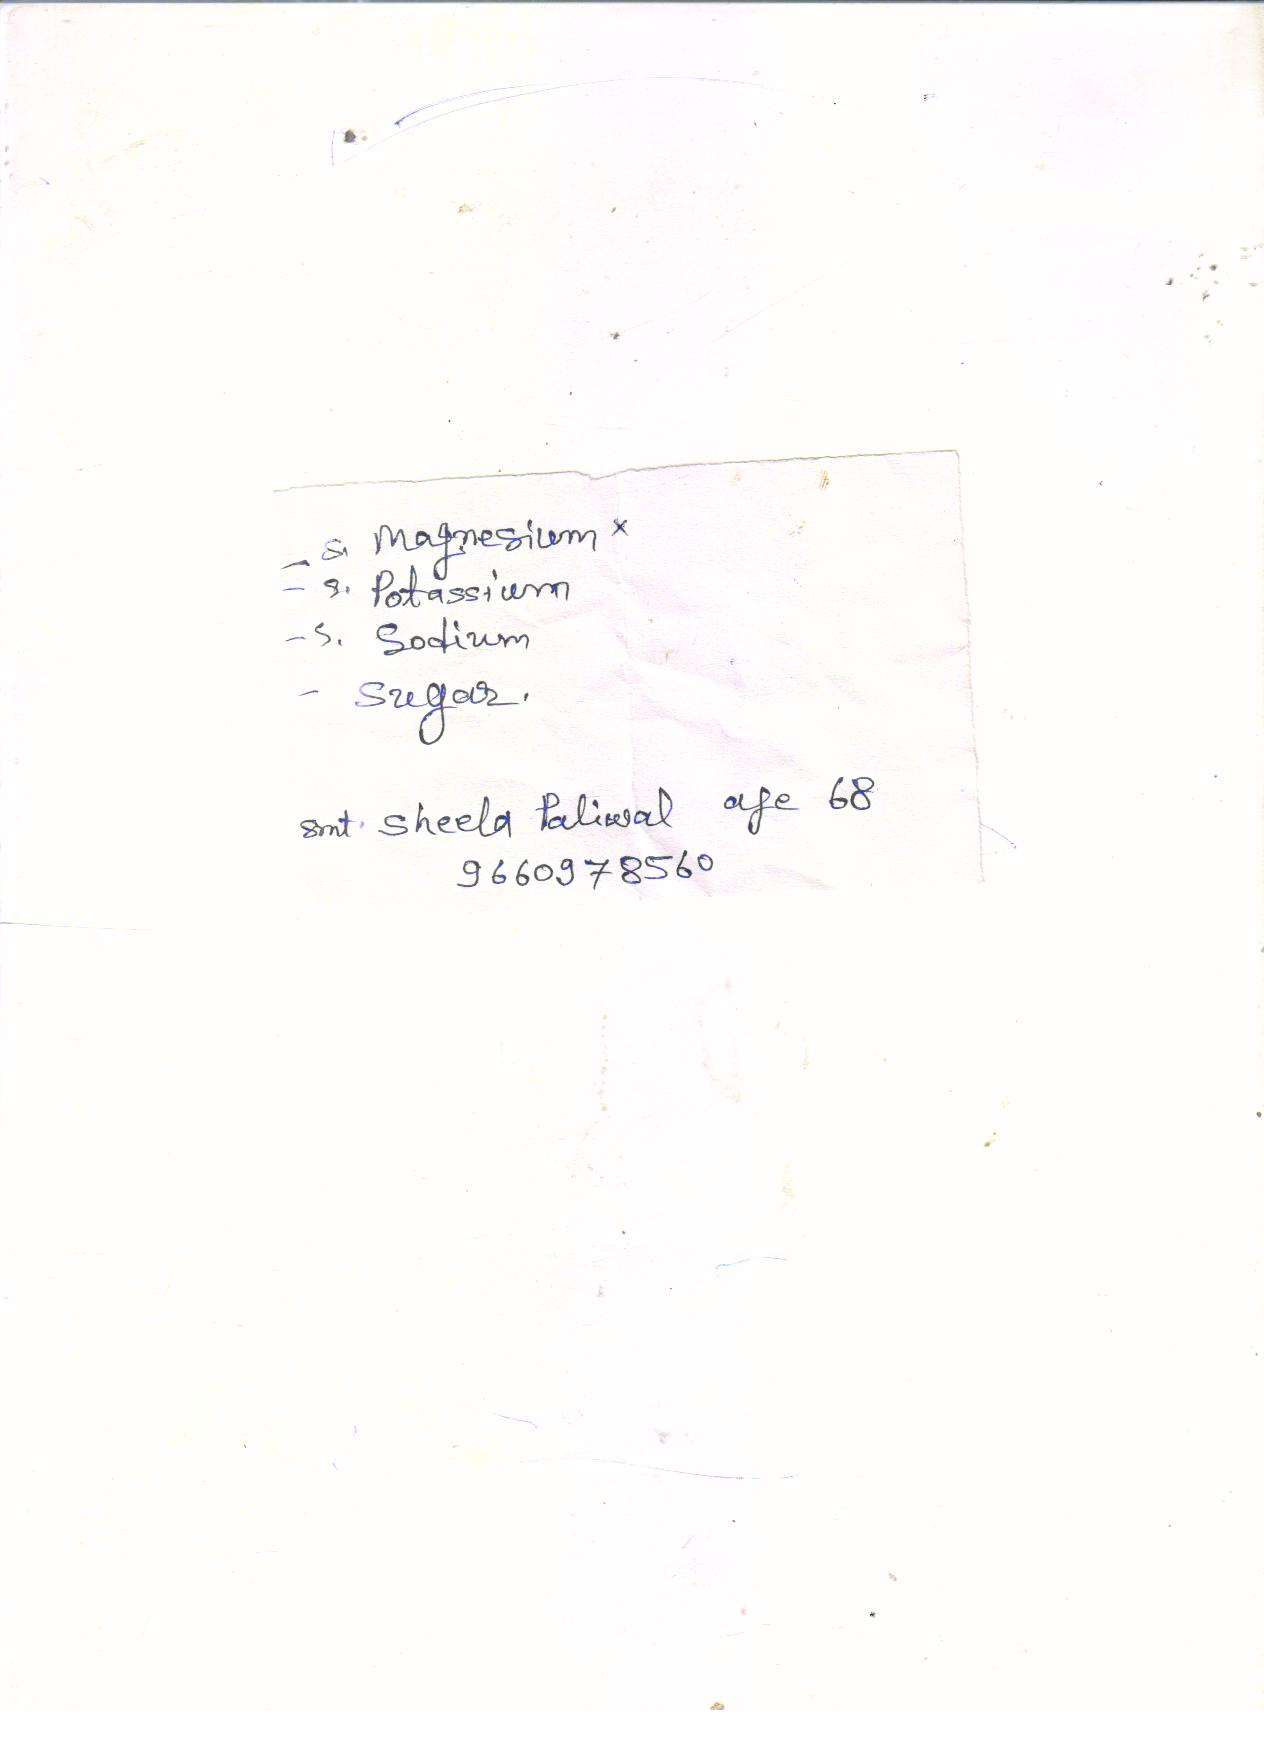 - S. Magnesium x
- S. Potassium
- S. Sodium
- Sugar.
smt. Sheela Paliwal age 68
9660978560